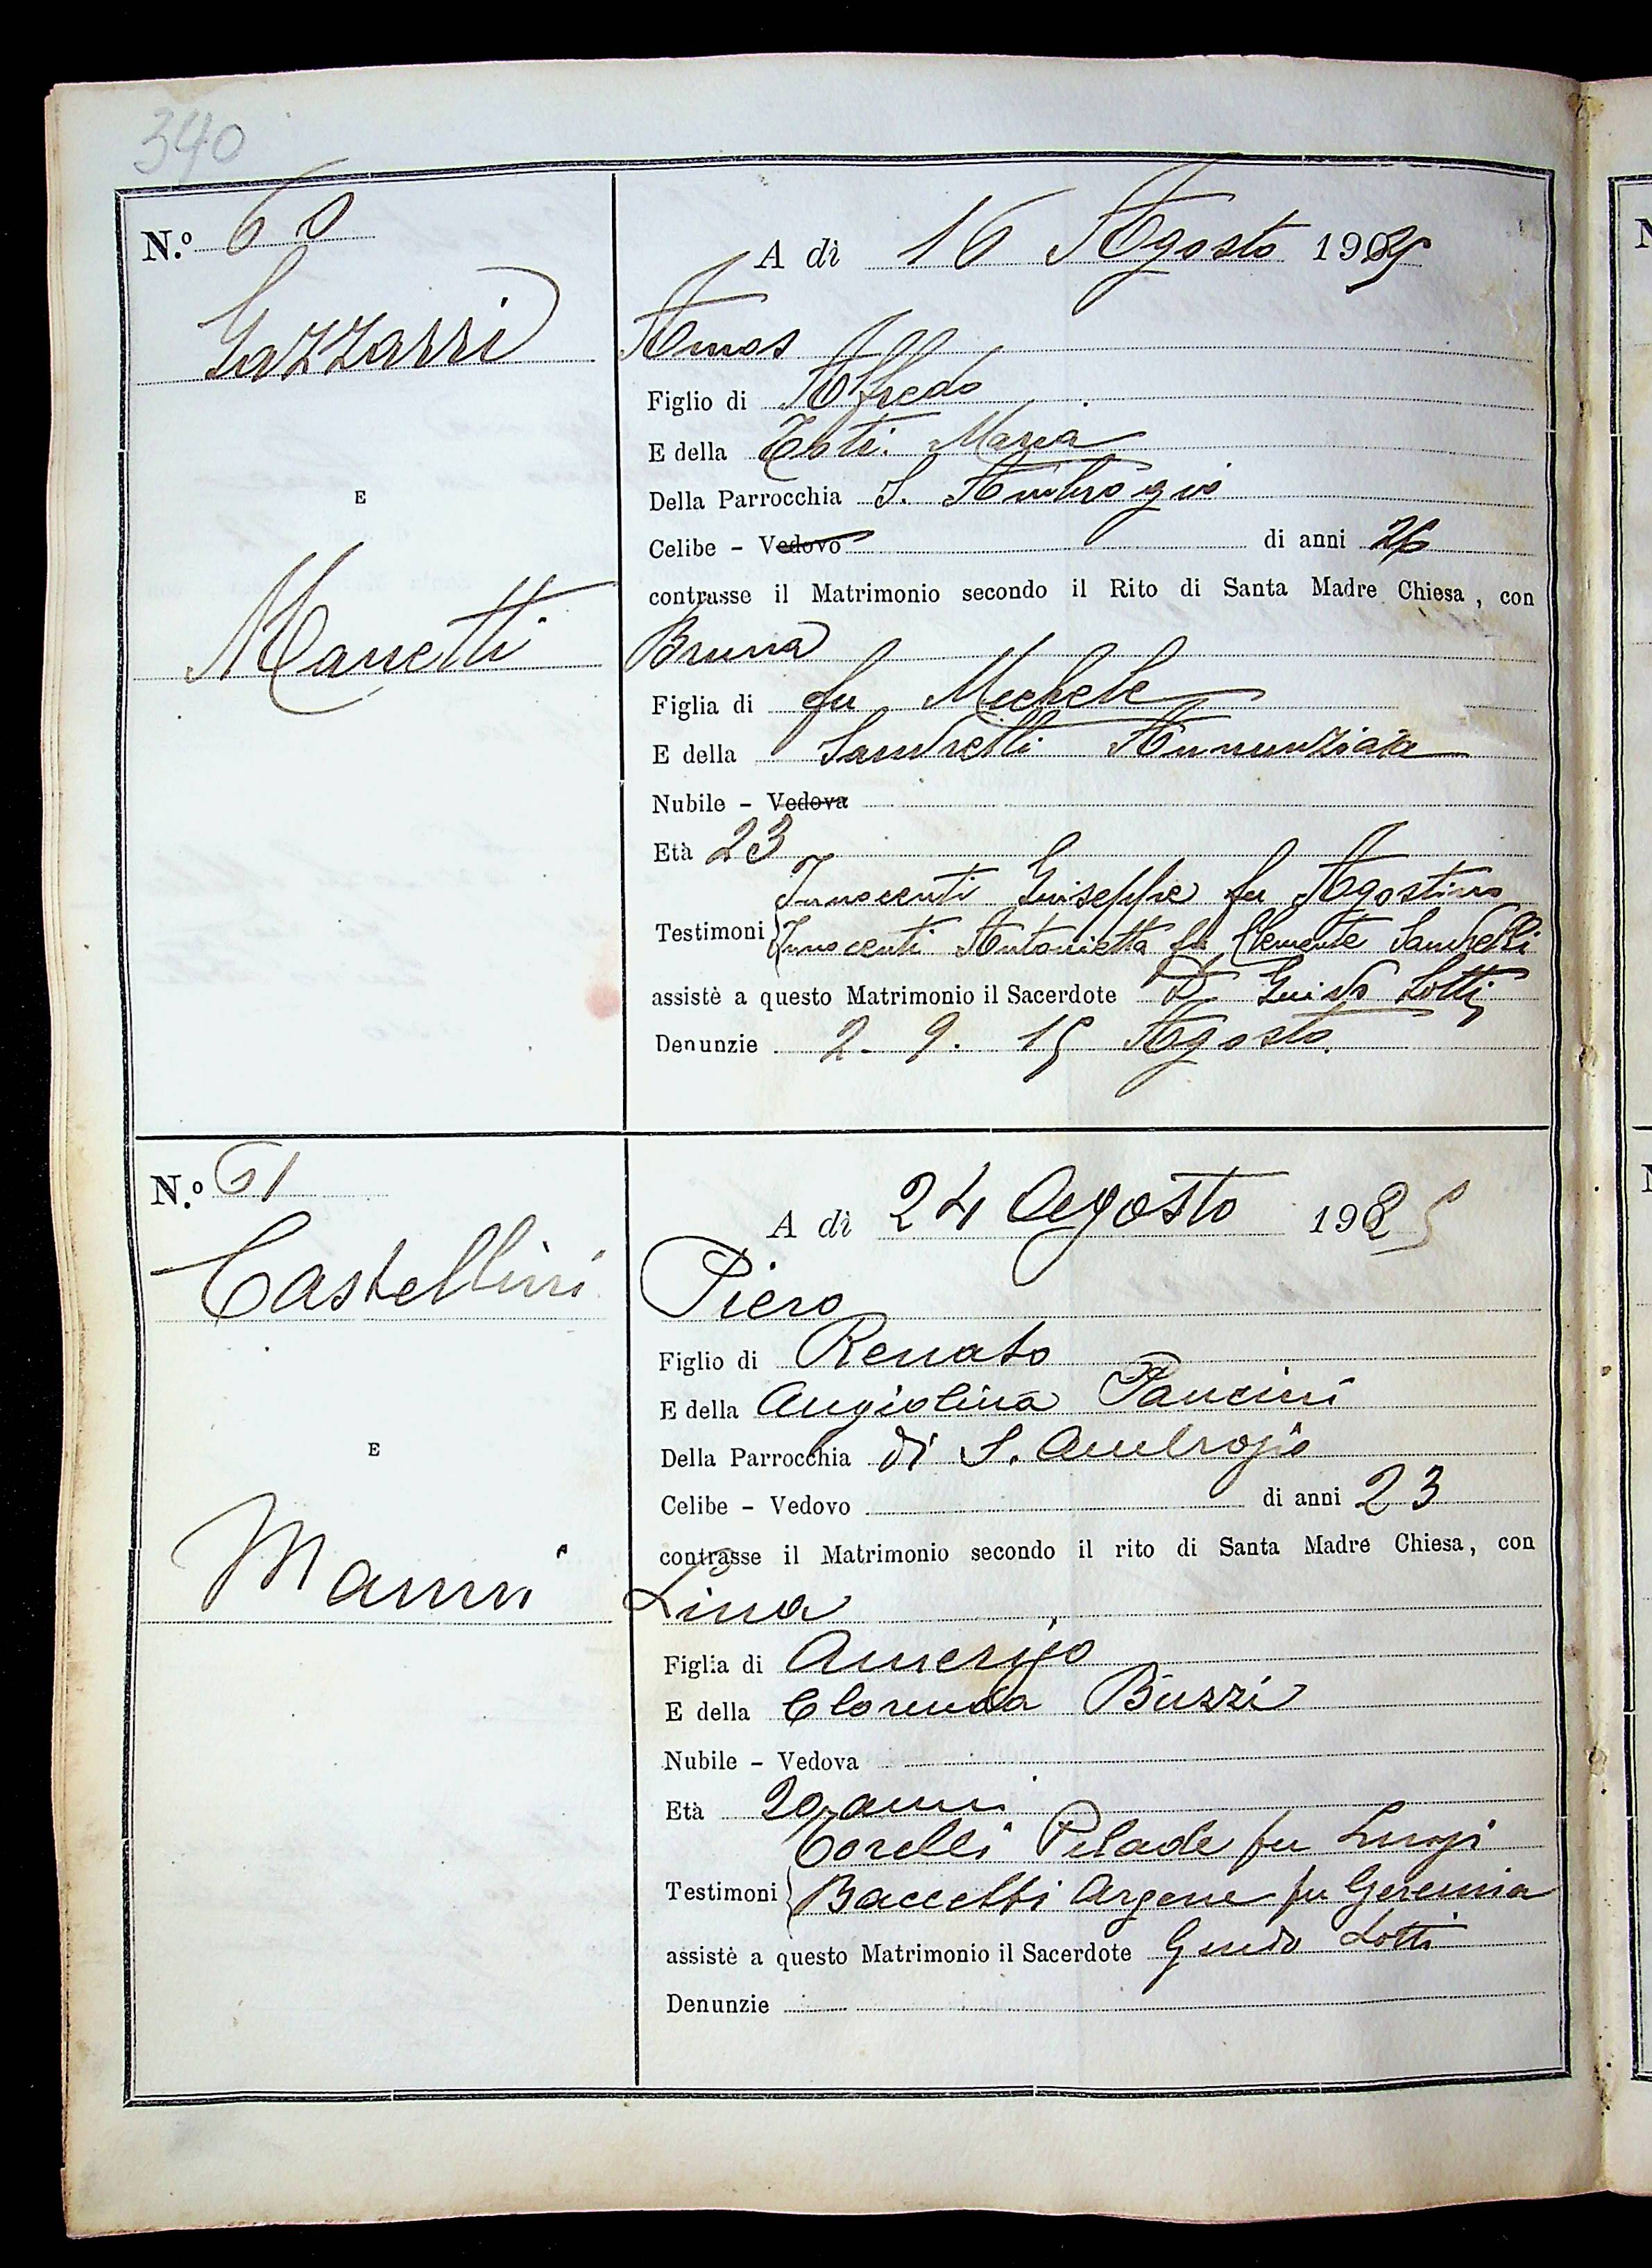 340
N.º 60
A dì 16 Agosto 1925
Gazzarri
Amos
Figlio di Alfredo
E della Testi Maria
Della Parrocchia S. Ambrogio
E
Celibe - Vedovo di anni 26
contrasse il Matrimonio secondo il Rito di Santa Madre Chiesa, con
Manetti
Bruna
Figlia di fu Michele
E della Sandrelli Annunziata
Nubile - Vedova
Età 23
Innocenti Giuseppe fu Agostino
Testimoni Innocenti Antonietta fu Clemente Sandrelli
assistè a questo Matrimonio il Sacerdote D. Guido Lotti
Denunzie 2. 9. 15 Agosto
N.º 61
A dì 24 Agosto 1925
Castellini
Piero
Figlio di Renato
E della Angiolina Pancini
E
Della Parrocchia di S. Ambrogio
Celibe - Vedovo di anni 23
contrasse il Matrimonio secondo il rito di Santa Madre Chiesa, con
Manni
Lina
Figlia di Amerigo
E della Clorinda Buzzi
Nubile - Vedova
Età 20 anni
Corelli Pilade fu Luigi
Testimoni Baccetti Argene fu Geremia
assistè a questo Matrimonio il Sacerdote Guido Lotti
Denunzie